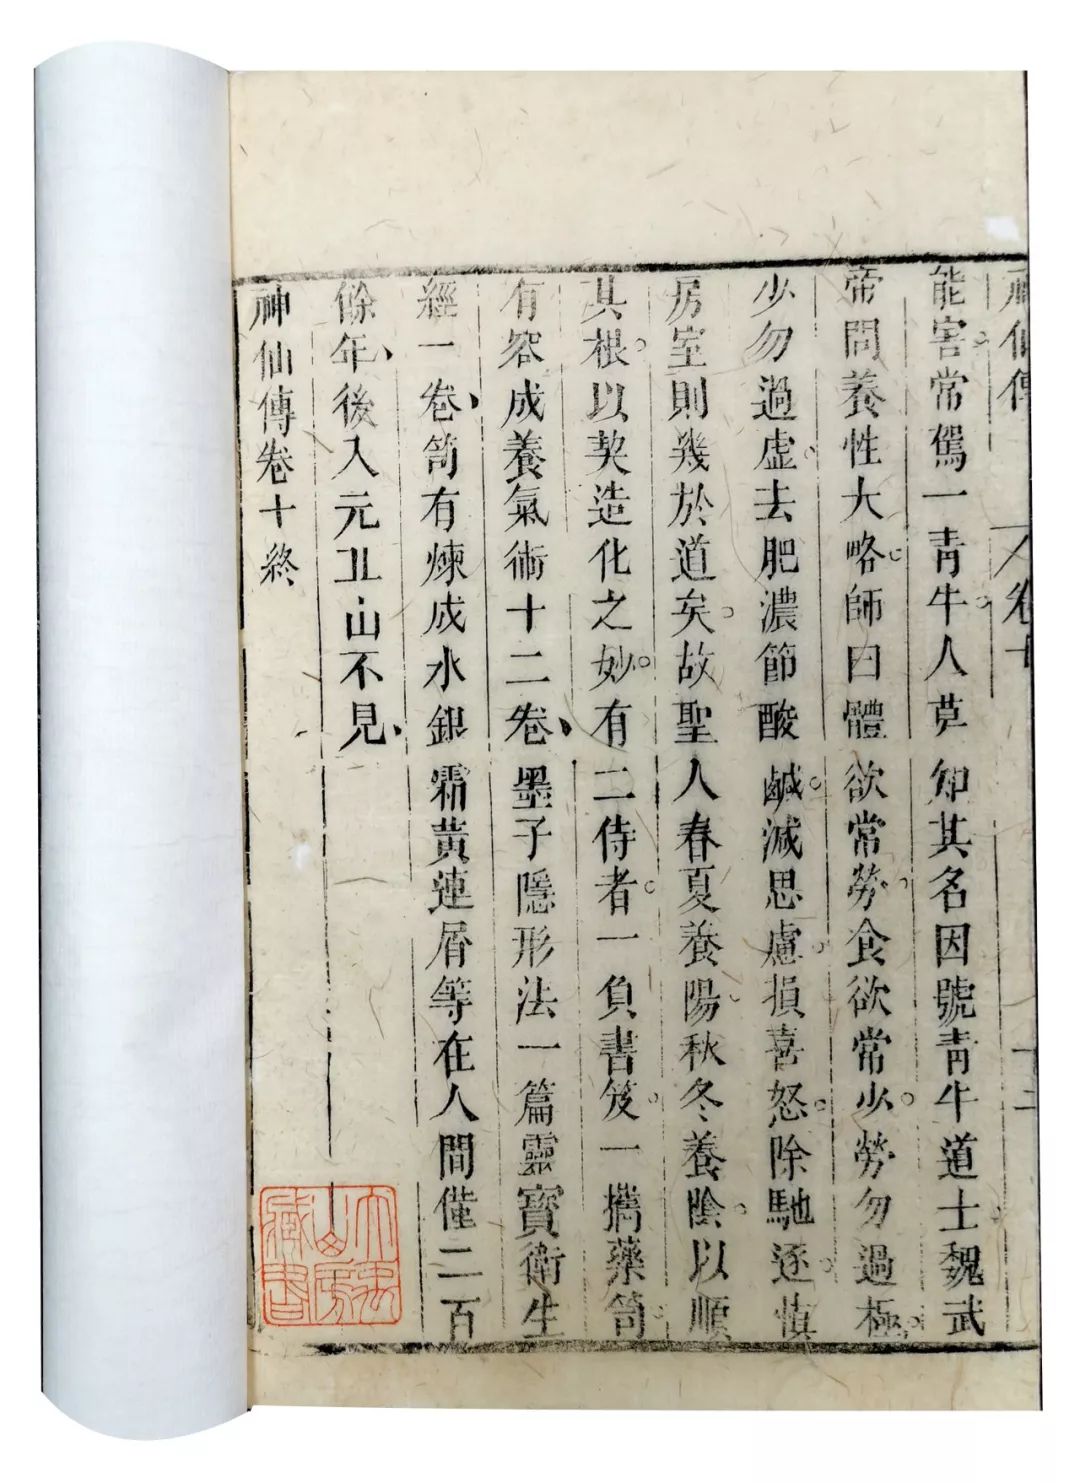 神仙傳
卷十
十二
能害常駕一青牛人莫知其名因號青牛道士魏武
帝問養性大略師曰體欲常勞食欲常少勞勿過極
少勿過虛去肥濃節酸鹹減思慮損喜怒除馳逐慎
房室則幾於道矣故聖人春夏養陽秋冬養陰以順
其根以契造化之妙有二侍者一負書笈一擕藥笥
有容成養氣術十二卷墨子隱形法一篇靈寶衛生
經一卷笥有煉成水銀霜黃連屑等在人間僅二百
餘年後入元丘山不見
神仙傳卷十終
大
山房
藏書